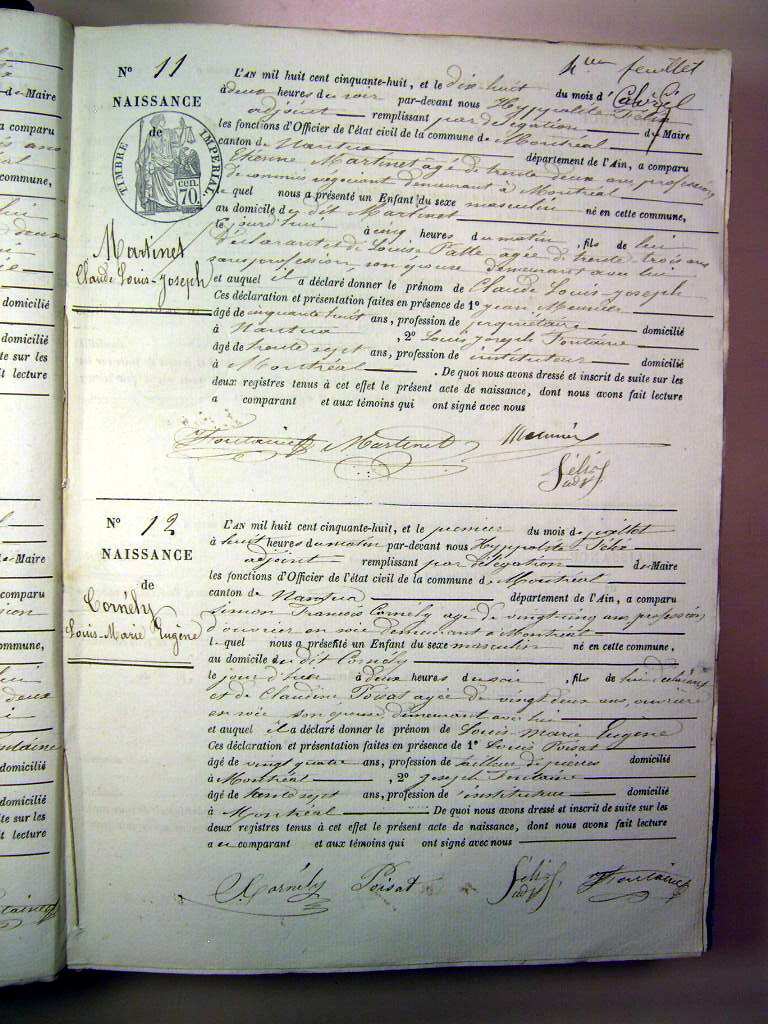 4me feuillet
N° 11
NAISSANCE
de
TIMBRE IMPÉRIAL
70 cen.
Martinet
Claude Louis-Joseph
L'AN mil huit cent cinquante-huit, et le dix huit du mois d'avril
à deux heures du soir par-devant nous Hyppolite Félix
adjoint remplissant par délégation de Maire
les fonctions d'Officier de l'état civil de la commune de Montréal
canton de Nantua département de l'Ain, a comparu
Etienne Martinet agé de trente deux ans profession
de commis négociant demeurant à Montréal
lequel nous a présenté un Enfant du sexe masculin né en cette commune,
au domicile du dit Martinet
le jourd'hui à cinq heures du matin, fils de lui
déclarant et de Louise agée de trente trois ans
sans profession, son épouse demeurant avec lui
et auquel il a déclaré donner le prénom de Claude Louis-Joseph
Ces déclaration et présentation faites en présence de 1° Jean Meunier
âgé de cinquante huit ans, profession de propriétaire domicilié
à Nantua, 2° Louis Joseph Fontaine
âgé de trente sept ans, profession de instituteur domicilié
à Montréal. De quoi nous avons dressé et inscrit de suite sur les
deux registres tenus à cet effet le présent acte de naissance, dont nous avons fait lecture
a comparant et aux témoins qui ont signé avec nous
Fontaine Martinet Meunier
Félix
adj
N° 12
NAISSANCE
de
Cornély
Louis-Marie Eugène
L'AN mil huit cent cinquante-huit, et le premier du mois de juillet
à huit heures du matin par-devant nous Hyppolite Félix
adjoint remplissant par délégation de Maire
les fonctions d'Officier de l'état civil de la commune de Montréal
canton de Nantua département de l'Ain, a comparu
Simon François Cornély agé de vingt-cinq ans profession
d'ouvrier en soie demeurant à Montréal
lequel nous a présenté un Enfant du sexe masculin né en cette commune,
au domicile du dit Cornely
le jour d'hier à deux heures du soir, fils de lui déclarant
et de Claudine Poisat agée de vingt deux ans, ouvrière
en soie son épouse demeurant avec lui
et auquel il a déclaré donner le prénom de Louis Marie Eugène
Ces déclaration et présentation faites en présence de 1° Louis Poisat
âgé de vingt quatre ans, profession de tailleur de pierres domicilié
à Montréal, 2° Joseph Fontaine
âgé de trente sept ans, profession d'instituteur domicilié
à Montréal. De quoi nous avons dressé et inscrit de suite sur les
deux registres tenus à cet effet le présent acte de naissance, dont nous avons fait lecture
a u comparant et aux témoins qui ont signé avec nous
Cornély Poisat Félix Fontaine
adj